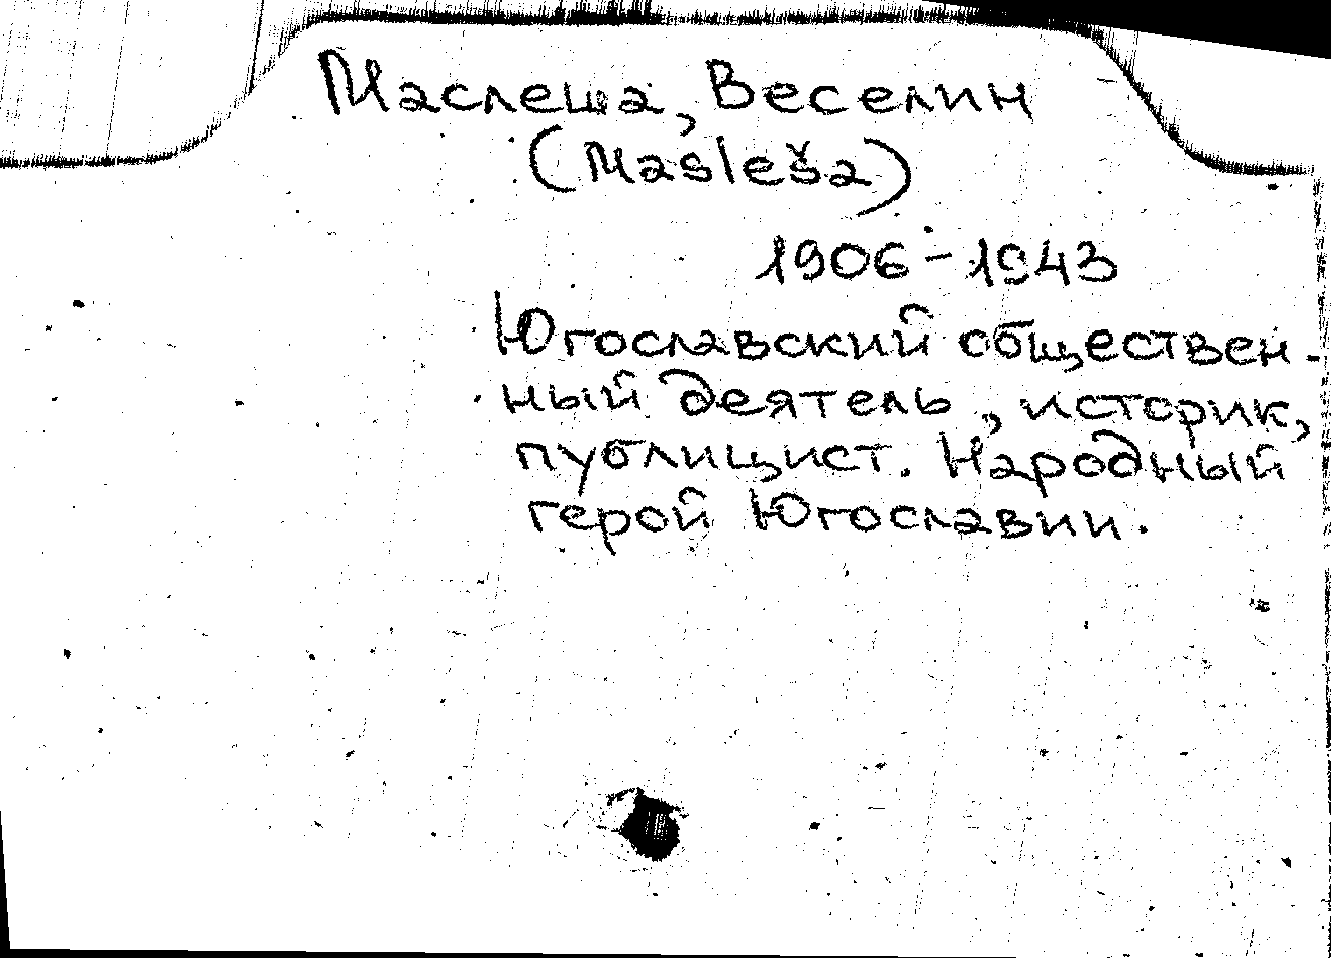 Маслеша, Веселин
(Masleša)
1906-1943
Югославский обществен-
ный деятель, историк,
публицист. Народный
герой Югославии.